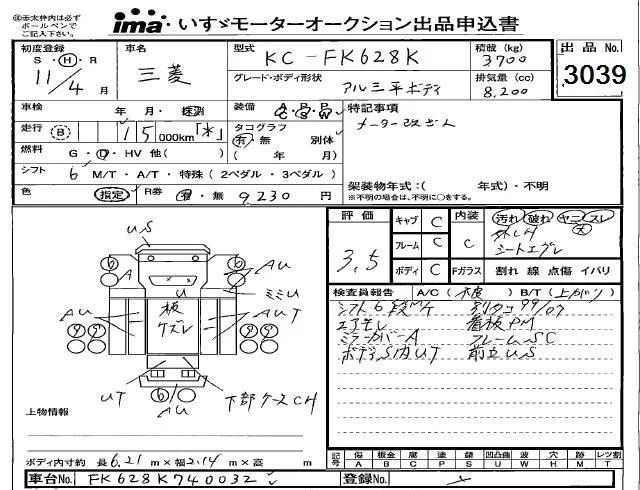 ※太枠内は必ずボールペンでご記入下さい。
ima いすゞモーターオークション出品申込書
初度登録
S・H・R
11/4 月
車名
三菱
型式
KC-FK628K
グレード・ボディ形状
アルミ平ボディ
積載 (kg)
3700
排気量 (cc)
8,200
出品 No.
3039
車検
年・月・
装備
特記事項
メーター改ざん
走行 B
15 000km「*」
タコグラフ
有・無 別体
( 年 月)
燃料
G・D・HV 他( )
シフト
6 M/T・A/T・特殊 (2ペダル・3ペダル)
架装物年式:( 年式)・不明
※不明の場合は、不明に○をする。
色
指定
R券
有・無 9230 円
評価
3,5
キャブ C
フレーム C
ボディ C
内装
C
Fガラス
汚れ 破れ ヤニ スレ
大
シートエグレ
割れ 線 点傷 イバリ
検査員報告 A/C ( ) B/T (上がり)
シフト6段M/T 別タコ 99/07
エアモレ 看板PM
ミラーカバーA フレームSC
ボディS内UT 前立US
US
A
AU
ミミU
U
板ケズレ
AU
AUT
UT
AU
下部ケースCH
上物情報
ボディ内寸約 長 6.21 m×幅 2.14 m×高 m
記号
傷 A
板金 B
腐 C
塗 P
錆 S
凹凸曲 U
波 W
穴 H
跡 M
レンズ割 T
車台No.
FK628K740032
登録No.